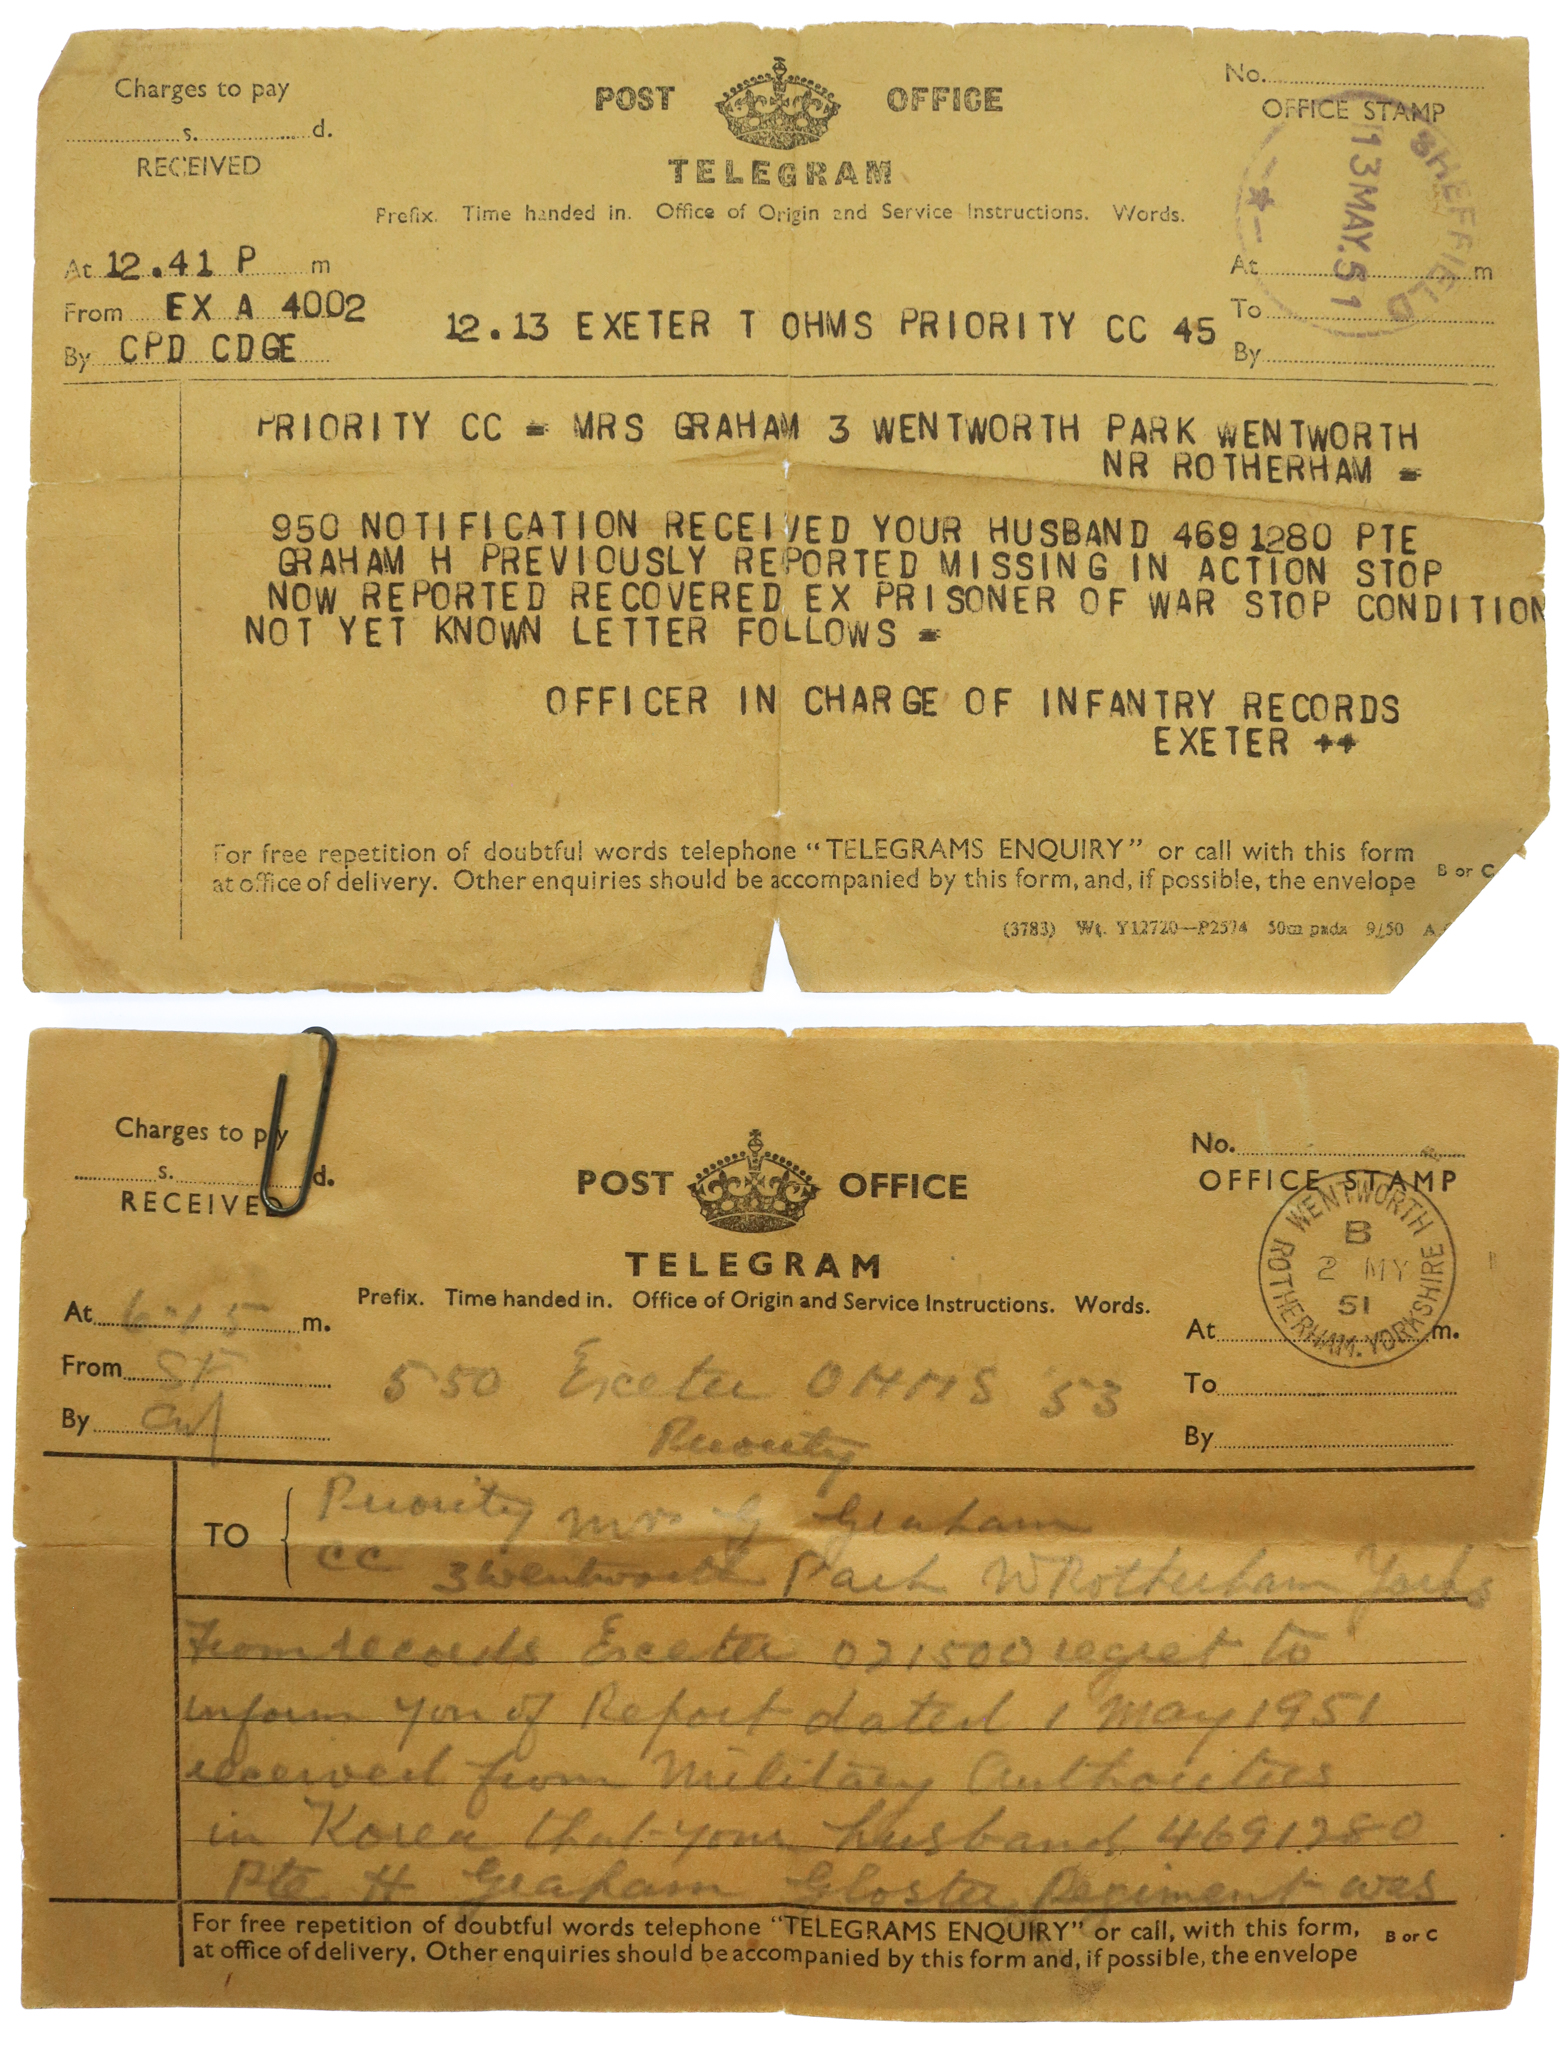 Charges to pay
s. d.
RECEIVED
POST OFFICE
TELEGRAM
No.
OFFICE STAMP
SHEFFIELD
13 MAY. 51
Prefix. Time handed in. Office of Origin and Service Instructions. Words.
At 12.41 P m
From EX A 4002
By CPD CDGE
12.13 EXETER T OHMS PRIORITY CC 45
At m
To
By
PRIORITY CC = MRS GRAHAM 3 WENTWORTH PARK WENTWORTH
NR ROTHERHAM =
950 NOTIFICATION RECEIVED YOUR HUSBAND 4691280 PTE
GRAHAM H PREVIOUSLY REPORTED MISSING IN ACTION STOP
NOW REPORTED RECOVERED EX PRISONER OF WAR STOP CONDITION
NOT YET KNOWN LETTER FOLLOWS =
OFFICER IN CHARGE OF INFANTRY RECORDS
EXETER ++
For free repetition of doubtful words telephone "TELEGRAMS ENQUIRY" or call with this form
at office of delivery. Other enquiries should be accompanied by this form, and, if possible, the envelope
B or C
(3783) Wt. Y12720—P2574 50m pads 9/50 A
Charges to pay
s. d.
RECEIVED
POST OFFICE
TELEGRAM
No.
OFFICE STAMP
WENTWORTH
ROTHERHAM. YORKSHIRE
B
2 MY
51
Prefix. Time handed in. Office of Origin and Service Instructions. Words.
At 6.15 m.
From SF
By
550 Exeter OHMS 53
Priority
At m.
To
By
TO
Priority Mrs G Graham
CC 3 Wentworth Park W Rotherham Yorks
From records Exeter 021500 regret to
inform you of Report dated 1 May 1951
received from Military Authorities
in Korea that your husband 4691280
Pte H Graham Gloster Regiment was
For free repetition of doubtful words telephone "TELEGRAMS ENQUIRY" or call, with this form,
at office of delivery. Other enquiries should be accompanied by this form and, if possible, the envelope
B or C